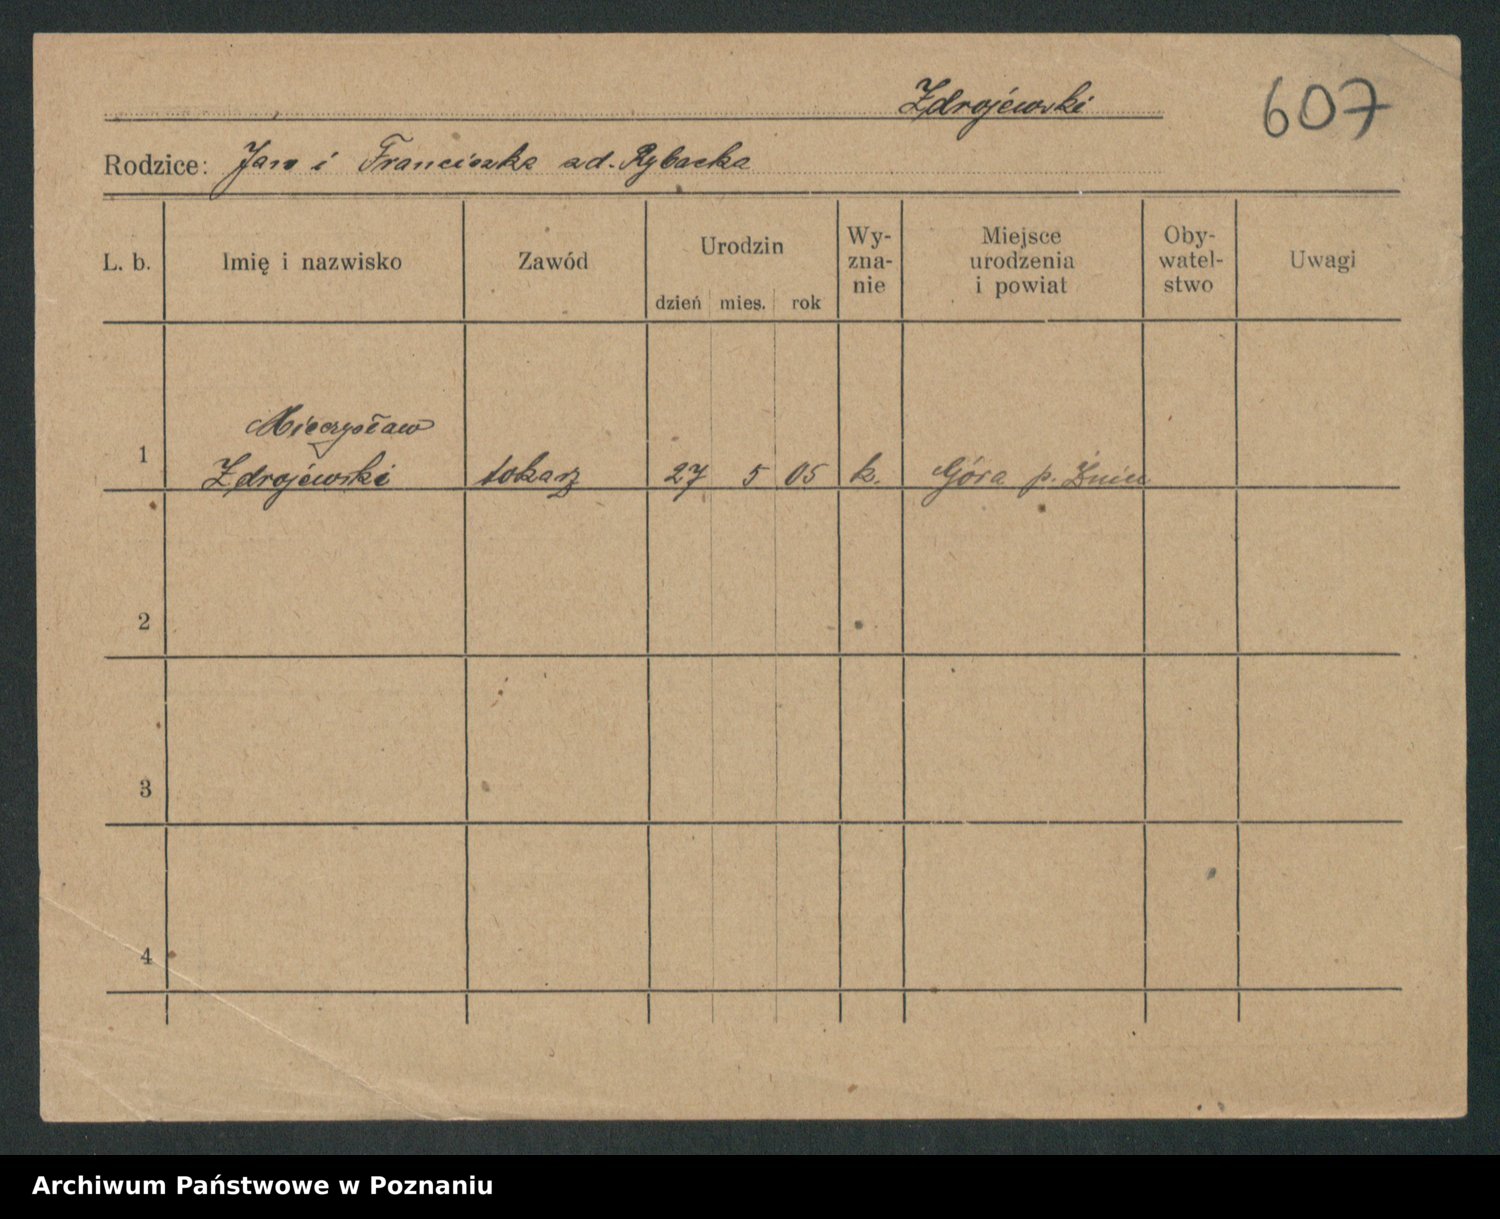 Zdrojewski
607
Rodzice: Jan i Franciszka zd. Rybacka
L. b.
Imię i nazwisko
Zawód
Urodzin
dzień mies. rok
Wy-
zna-
nie
Miejsce
urodzenia
i powiat
Oby-
watel-
stwo
Uwagi
Mieczysław
1 Zdrojewski tokarz 27 5 05 k. Góra p. Żnin
2
3
4
Archiwum Państwowe w Poznaniu